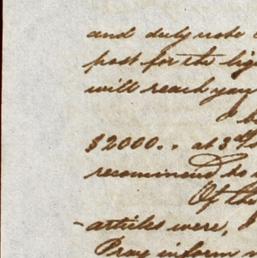 and duly note
post for the
will reach you
I
$2000.. at 3
recommend to
Of the
articles were, I
Pray inform